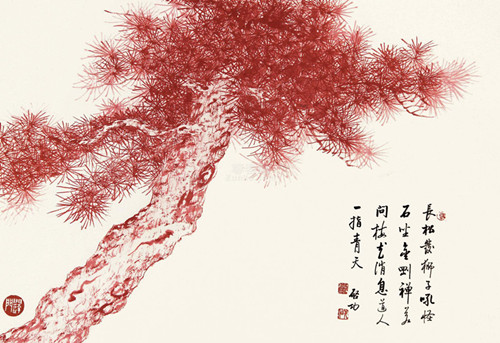 長松發獅子吼怪
石坐金剛禪若
問梅花消息道人
一指青天
啟功